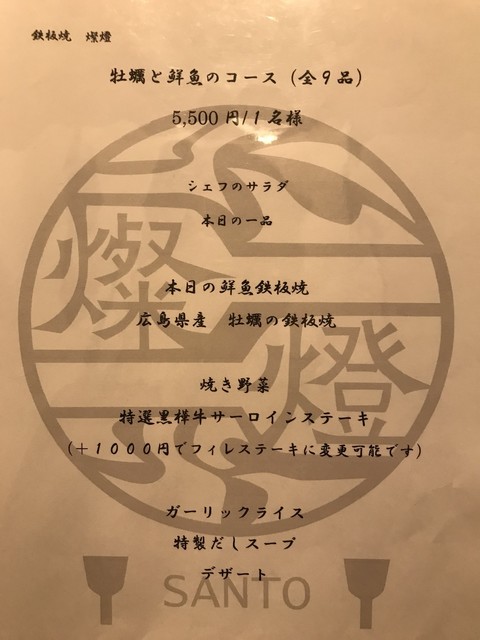 鉄板焼 燦燈
牡蠣と鮮魚のコース（全９品）
5,500 円/１名様
シェフのサラダ
本日の一品
本日の鮮魚鉄板焼
広島県産 牡蠣の鉄板焼
焼き野菜
特選黒樺牛サーロインステーキ
（＋１０００円でフィレステーキに変更可能です）
ガーリックライス
特製だしスープ
デザート
燦燈
SANTO